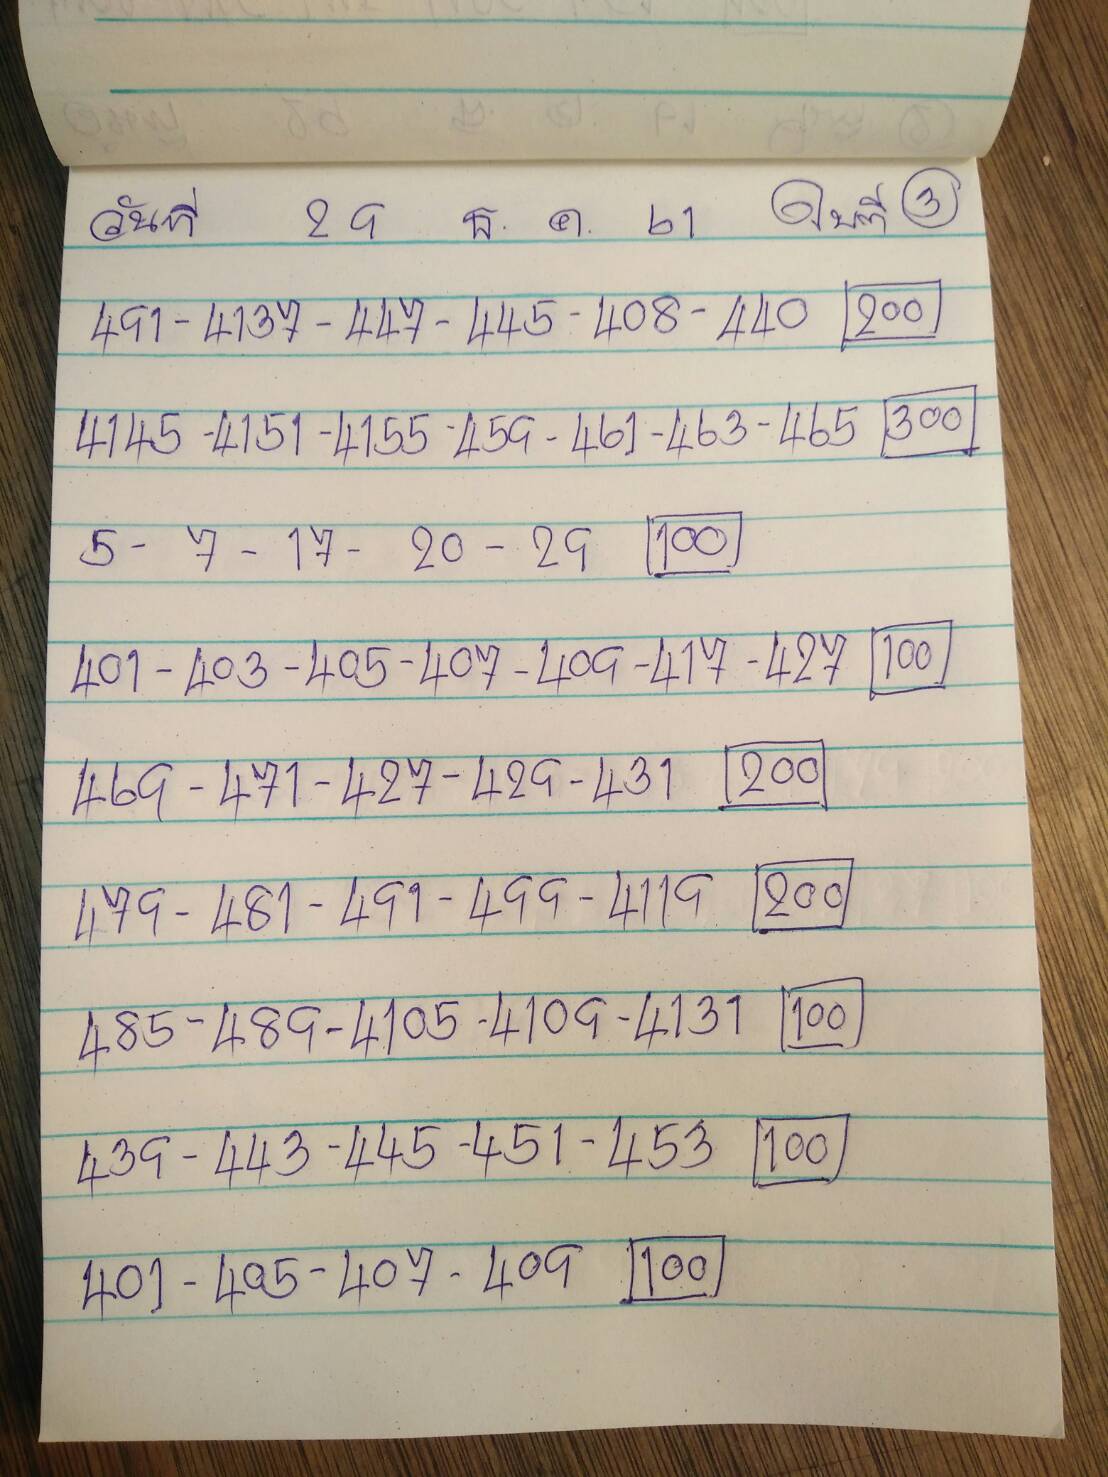 วันที่ 29 ธ. ค. 61 ใบที่ 3
491 - 4137 - 447 - 445 - 408 - 440 200
4145 - 4151 - 4155 - 459 - 461 - 463 - 465 300
5 - 7 - 17 - 20 - 29 100
401 - 403 - 405 - 407 - 409 - 417 - 427 100
469 - 471 - 427 - 429 - 431 200
479 - 481 - 491 - 499 - 4119 200
485 - 489 - 4105 - 4109 - 4131 100
439 - 443 - 445 - 451 - 453 100
401 - 405 - 407 - 409 100